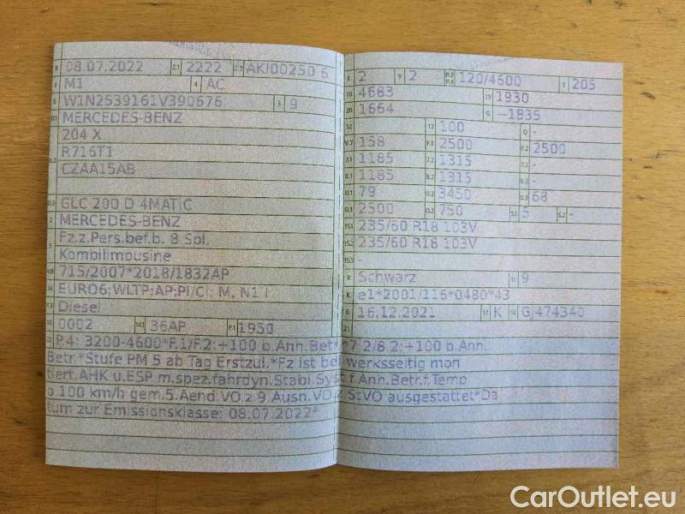 08.07.2022 2222 AKJ00250 6
M1 AC
W1N2539161V390676 9
MERCEDES-BENZ
204 X
R716T1
CZAA15AB
GLC 200 D 4MATIC
MERCEDES-BENZ
Fz.z.Pers.bef.b. 8 Spl.
Kombilimousine
715/2007*2018/1832AP
EURO6;WLTP;AP;PI/CI; M, N1 I
Diesel
0002 36AP 1950
2 2 120/4600 205
4683 1930
1664 -1835
100 -
158 2500 2500
1185 1315
1185 1315
79 3450 68
2500 750 5 -
235/60 R18 103V
235/60 R18 103V
-
Schwarz 9
e1*2001/116*0480*43
16.12.2021 K GJ474340
P.4: 3200-4600*F.1/F.2:+100 b.Anh.Betr*7.2/8.2:+100 b.Anh.
Betr.*Stufe PM 5 ab Tag Erstzul.*Fz ist bei werksseitig mon
tiert.AHK u.ESP m.spez.fahrdyn.Stabi.Syst.f.Anh.Betr.f.Temp
o 100 km/h gem.5.Aend.VO.z.9.Ausn.VO.z.StVO ausgestattet*Da
tum zur Emissionsklasse: 08.07.2022*
CarOutlet.eu